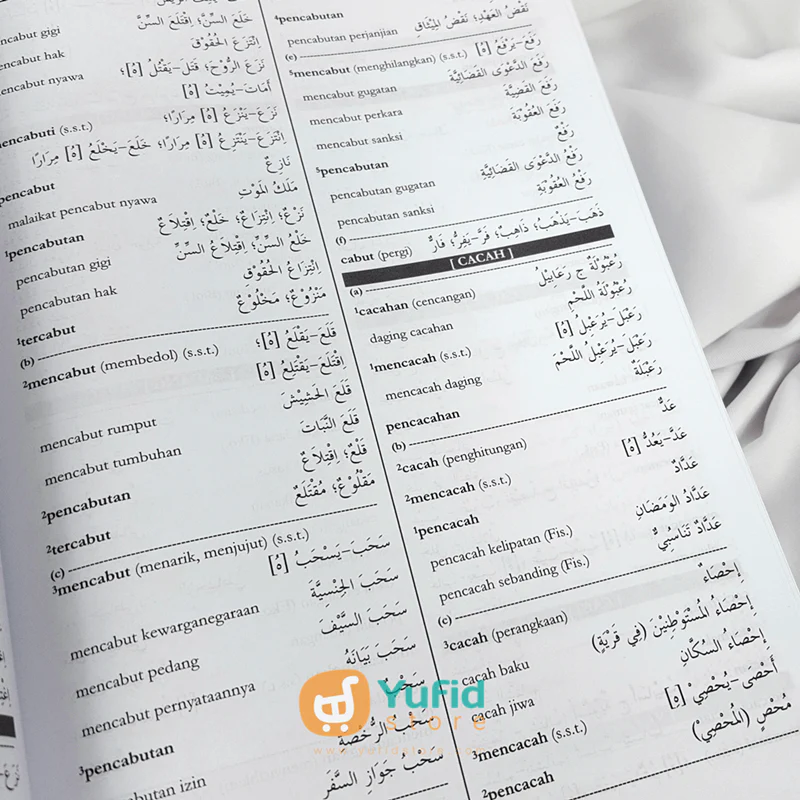 cabut gigi خَلَعَ السِّنَّ؛ اِقْتَلَعَ السِّنَّ
cabut hak اِنْتَزَعَ الحُقُوْقَ
cabut nyawa نَزَعَ الرُّوْحَ؛ قَتَلَ–يَقْتُلُ [هُ]؛
أَمَاتَ–يُمِيْتُ [هُ]
mencabuti (s.s.t.) نَزَعَ–يَنْزَعُ [هُ] مِرَارًا؛
اِنْتَزَعَ–يَنْتَزِعُ [هُ] مِرَارًا؛ خَلَعَ–يَخْلَعُ [هُ] مِرَارًا
pencabut نَازِعٌ
malaikat pencabut nyawa مَلَكُ المَوْتِ
¹pencabutan نَزْعٌ؛ اِنْتِزَاعٌ؛ خَلْعٌ؛ اِقْتِلَاعٌ
pencabutan gigi خَلْعُ السِّنِّ؛ اِقْتِلَاعُ السِّنِّ
pencabutan hak اِنْتِزَاعُ الحُقُوْقِ
¹tercabut مَنْزُوْعٌ؛ مَخْلُوْعٌ
(b)
²mencabut (membedol) (s.s.t.) قَلَعَ–يَقْلَعُ [هُ]؛
اِقْتَلَعَ–يَقْتَلِعُ [هُ]
mencabut rumput قَلَعَ الحَشِيْشَ
mencabut tumbuhan قَلَعَ النَّبَاتَ
²pencabutan قَلْعٌ؛ اِقْتِلَاعٌ
²tercabut مَقْلُوْعٌ؛ مُقْتَلَعٌ
(c)
³mencabut (menarik, menjujut) (s.s.t.)
سَحَبَ–يَسْحَبُ [هُ]
mencabut kewarganegaraan سَحَبَ الجِنْسِيَّةَ
mencabut pedang سَحَبَ السَّيْفَ
mencabut pernyataannya سَحَبَ بَيَانَهُ
³pencabutan سَحْبٌ
cabutan izin سَحْبُ الرُّخْصَةِ
سَحْبُ جَوَازِ السَّفَرِ
⁴pencabutan
pencabutan perjanjian نَقْضُ العَهْدِ؛ نَقْضُ المِيْثَاقِ
(e)
⁵mencabut (menghilangkan) (s.s.t.) رَفَعَ–يَرْفَعُ [هُ]
mencabut gugatan رَفَعَ الدَّعْوَى القَضَائِيَّةَ
mencabut perkara رَفَعَ القَضِيَّةَ
mencabut sanksi رَفَعَ العُقُوْبَةَ
⁵pencabutan رَفْعٌ
pencabutan gugatan رَفْعُ الدَّعْوَى القَضَائِيَّةِ
pencabutan sanksi رَفْعُ العُقُوْبَةِ
(f)
cabut (pergi) ذَهَبَ–يَذْهَبُ؛ ذَاهِبٌ؛ فَرَّ–يَفِرُّ؛ فَارٌّ
[ CACAH ]
(a)
¹cacahan (cencangan) رُعْبُوْلَةٌ ج رَعَابِيْلُ
daging cacahan رُعْبُوْلَةُ اللَّحْمِ
¹mencacah (s.s.t.) رَعْبَلَ–يُرَعْبِلُ [هُ]
mencacah daging رَعْبَلَ–يُرَعْبِلُ اللَّحْمَ
pencacahan رَعْبَلَةٌ
(b)
²cacah (penghitungan) عَدٌّ
²mencacah (s.s.t.) عَدَّ–يَعُدُّ [هُ]
¹pencacah عَدَّادٌ
pencacah kelipatan (Fis.) عَدَّادُ الوَمَضَانِ
pencacah sebanding (Fis.) عَدَّادٌ تَنَاسُبِيٌّ
(c)
³cacah (perangkaan) إِحْصَاءٌ
cacah baku إِحْصَاءُ المُسْتَوْطِنِيْنَ (فِي قَرْيَةٍ)
cacah jiwa إِحْصَاءُ السُّكَّانِ
³mencacah (s.s.t.) أَحْصَى–يُحْصِيْ [هُ]
²pencacah مُحْصٍ (المُحْصِيْ)
Yufid
store
www.yufidstore.com